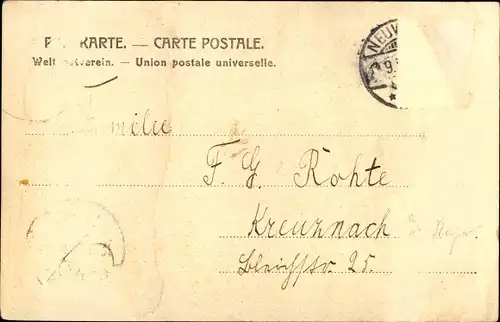 P KARTE. — CARTE POSTALE.
Weltpostverein. — Union postale universelle.
NEUW
9
milie
F. G. Röhte
Kreuznach
Bleichstr. 25.